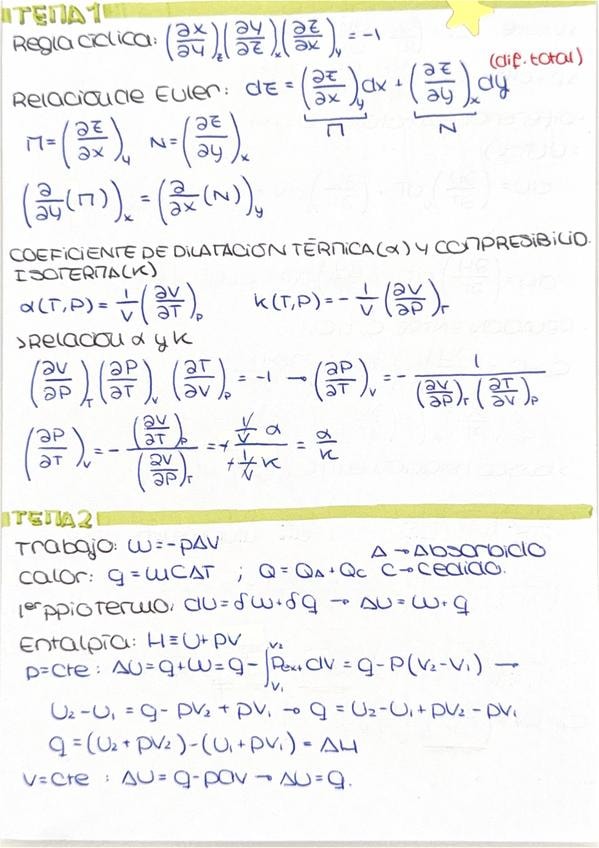 TEMA 1
Regla cíclica: (∂x/∂y)_z (∂y/∂z)_x (∂z/∂x)_y = -1
(dif. total)
Relación de Euler: dz = (∂z/∂x)_y dx + (∂z/∂y)_x dy
M N
M = (∂z/∂x)_y N = (∂z/∂y)_x
(∂/∂y (M))_x = (∂/∂x (N))_y
COEFICIENTE DE DILATACIÓN TÉRMICA (α) Y COMPRESIBILID.
ISOTERMA (K)
α(T,P) = 1/V (∂V/∂T)_P K(T,P) = - 1/V (∂V/∂P)_T
>Relación α y K
(∂V/∂P)_T (∂P/∂T)_V (∂T/∂V)_P = -1 → (∂P/∂T)_V = - 1/((∂V/∂P)_T (∂T/∂V)_P)
(∂P/∂T)_V = - (∂V/∂T)_P/(∂V/∂P)_T = α/K
TEMA 2
Trabajo: W = -pΔV A → Absorbido
Calor: q = mCΔT ; Q = QA + QC C → Cedido.
1er ppio termo: dU = δw + δq → ΔU = w + q
Entalpía: H ≡ U + PV
p = cte : ΔU = q + w = q - ∫_V1^V2 Pext dV = q - P(V2 - V1) →
U2 - U1 = q - PV2 + PV1 → q = U2 - U1 + PV2 - PV1
q = (U2 + PV2) - (U1 + PV1) = ΔH
V = cte : ΔU = q - pΔV → ΔU = q.